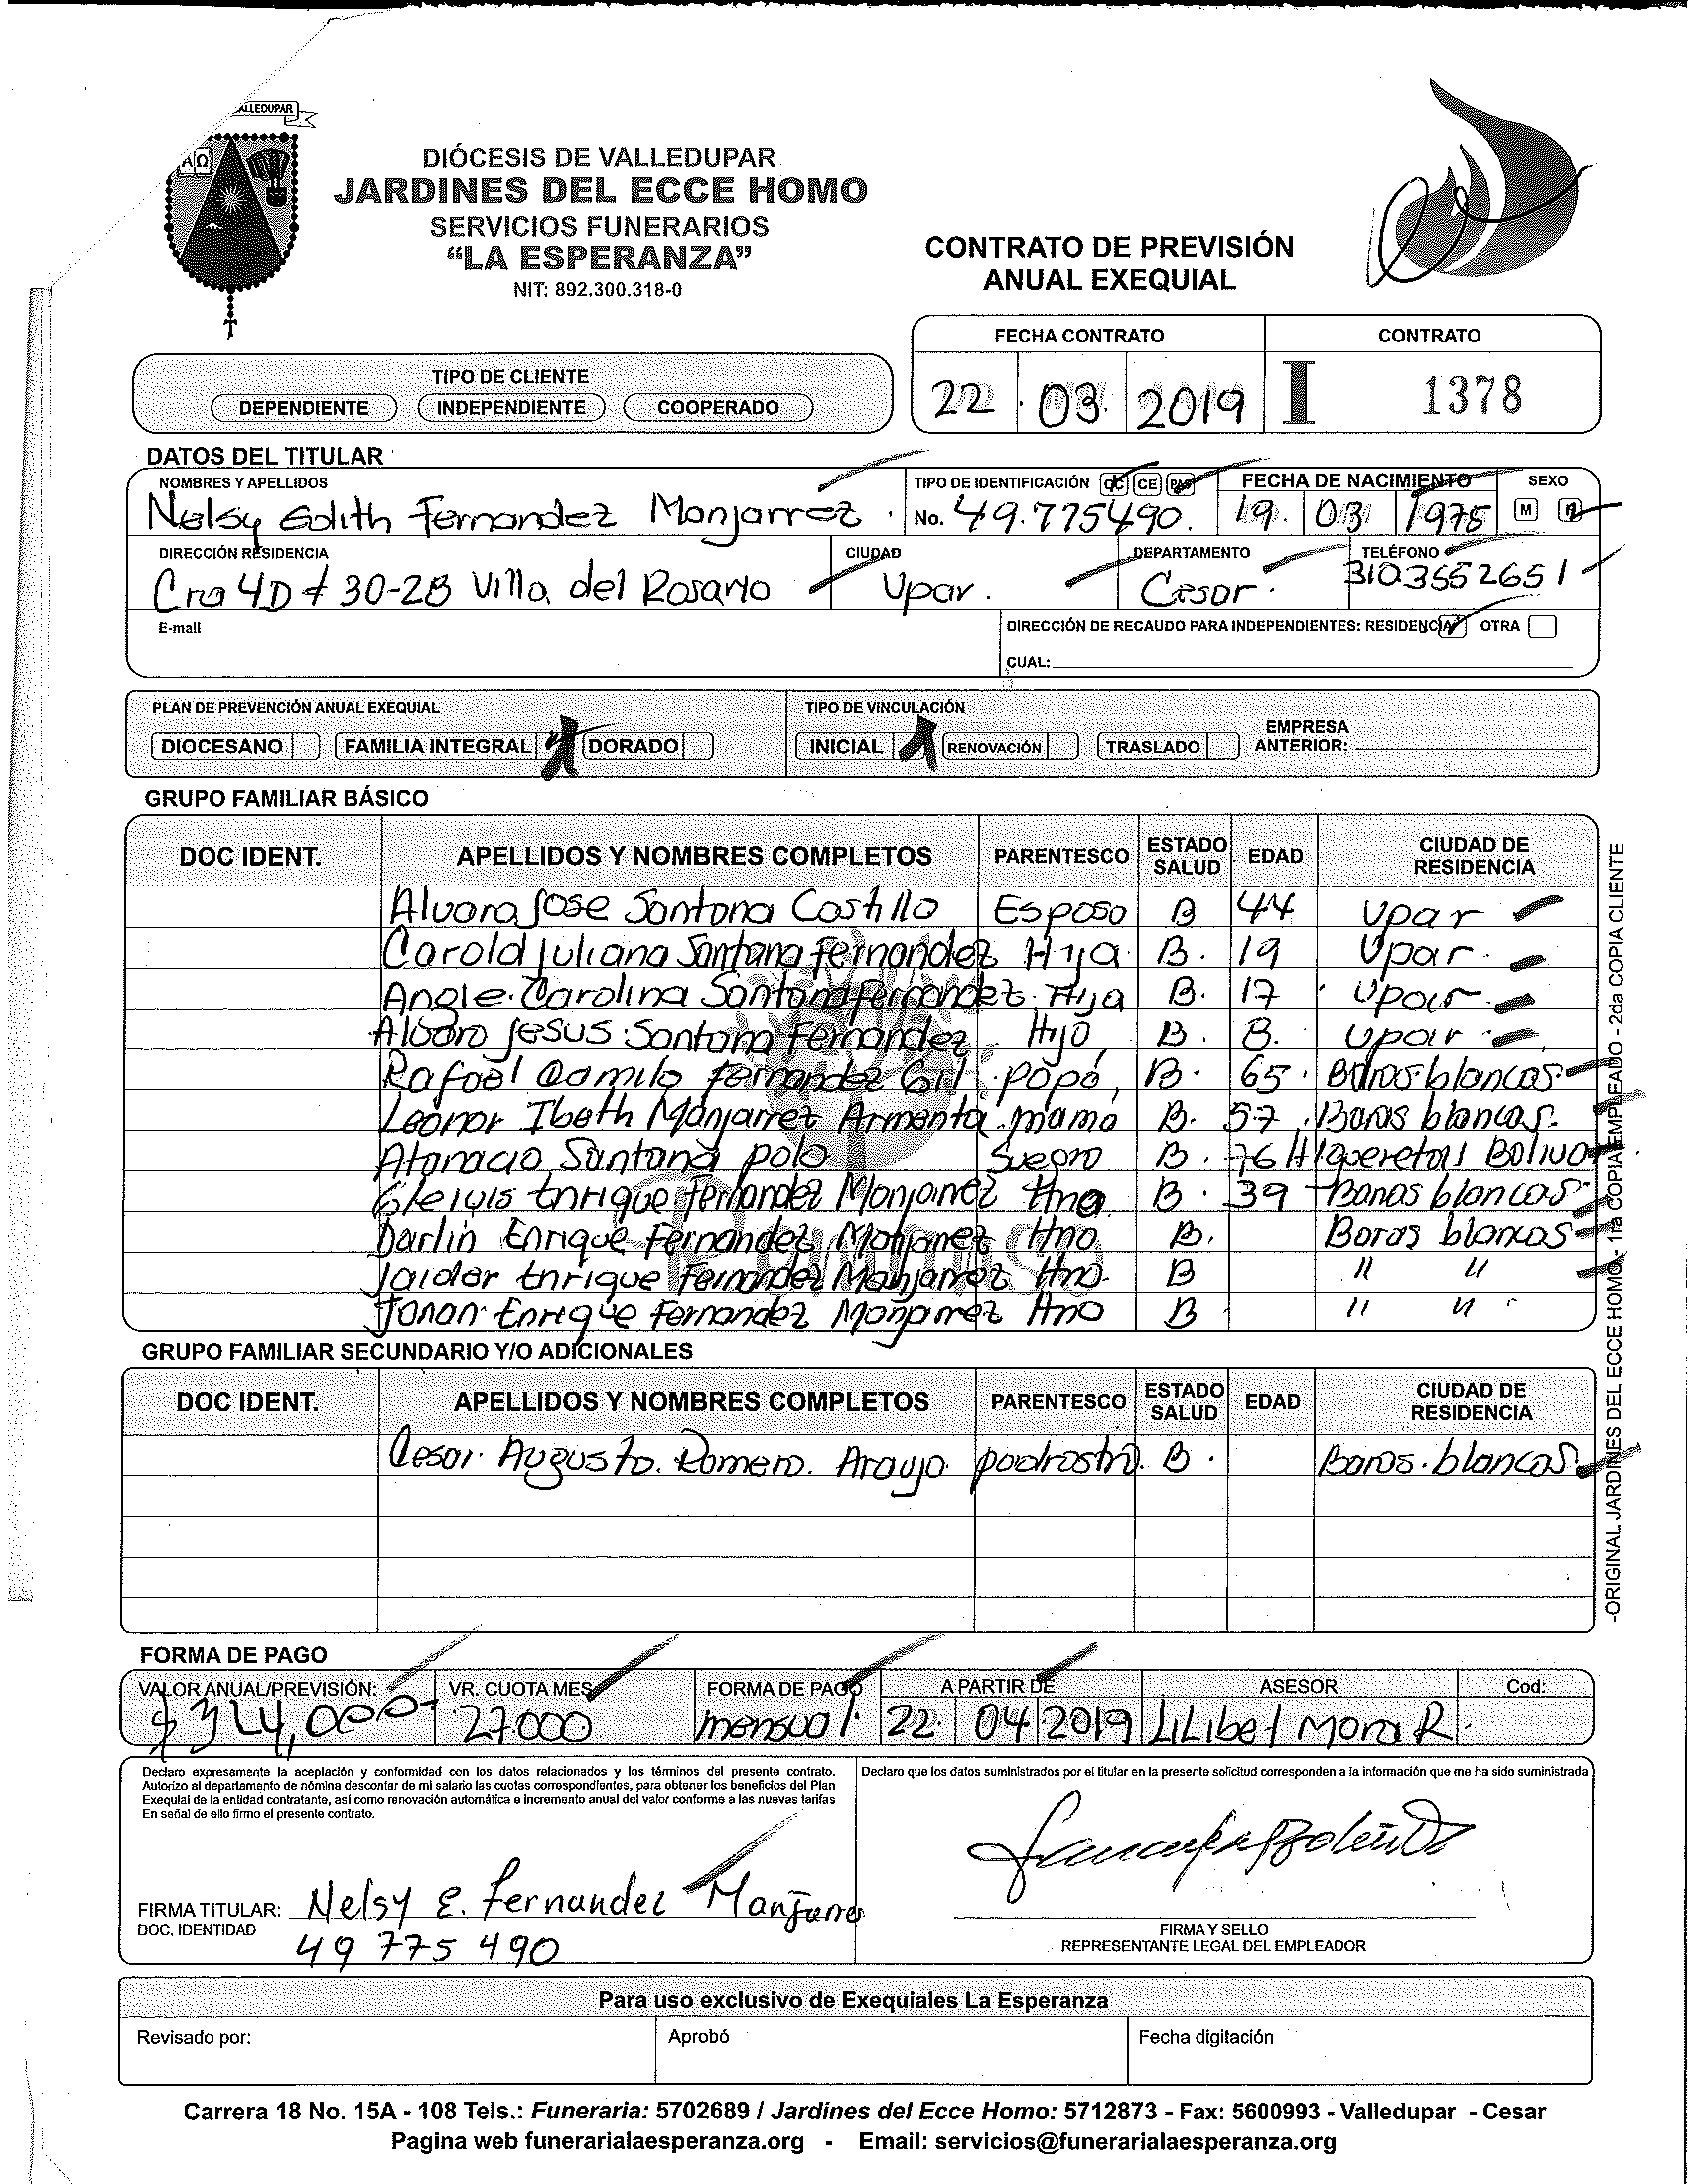 ALLEDUPAR
ΑΩ
DIÓCESIS DE VALLEDUPAR
JARDINES DEL ECCE HOMO
SERVICIOS FUNERARIOS
“LA ESPERANZA”
NIT: 892.300.318-0
CONTRATO DE PREVISIÓN
ANUAL EXEQUIAL
FECHA CONTRATO CONTRATO
22 03 2019 I 1378
TIPO DE CLIENTE
DEPENDIENTE INDEPENDIENTE COOPERADO
DATOS DEL TITULAR
NOMBRES Y APELLIDOS TIPO DE IDENTIFICACIÓN CC CE PAS FECHA DE NACIMIENTO SEXO
Nelsy Edith Fernandez Manjarrez No. 49.775490. 19. 03 1975 M F
DIRECCIÓN RESIDENCIA CIUDAD DEPARTAMENTO TELÉFONO
Cra 4D # 30-28 Villa del Rosario Upar. Cesar. 3103552651
E-mail DIRECCIÓN DE RECAUDO PARA INDEPENDIENTES: RESIDENCIA OTRA
CUAL:
PLAN DE PREVENCIÓN ANUAL EXEQUIAL TIPO DE VINCULACIÓN
DIOCESANO FAMILIA INTEGRAL DORADO INICIAL RENOVACIÓN TRASLADO EMPRESA ANTERIOR:
GRUPO FAMILIAR BÁSICO
DOC IDENT. APELLIDOS Y NOMBRES COMPLETOS PARENTESCO ESTADO SALUD EDAD CIUDAD DE RESIDENCIA
Alvaro Jose Santana Castillo Esposo B 44 Upar
Carold Juliana Santana Fernandez Hija B. 19 Upar
Angie Carolina Santana Fernandez Hija B. 17 Upar
Alvaro Jesus Santana Fernandez Hijo B. 8. Upar
Rafael Camilo Fernandez Gil papá, B. 65. blancas
Leonor Ibeth Manjarrez Armenta mamá B. 57 blancas.
Atanacio Santana polo Suegro B. 76
Enrique Fernandez Manjarrez Hno B. 39 blancas
Darlin Enrique Fernandez Manjarrez Hno B. blancas
Jaider Enrique Fernandez Manjarrez Hno. B " "
Enrique Fernandez Manjarrez Hno B " "
GRUPO FAMILIAR SECUNDARIO Y/O ADICIONALES
DOC IDENT. APELLIDOS Y NOMBRES COMPLETOS PARENTESCO ESTADO SALUD EDAD CIUDAD DE RESIDENCIA
Cesar. Augusto. Romero. Araujo padrastro. B. blancas
-ORIGINAL JARDINES DEL ECCE HOMO - 1ra COPIA EMPLEADO - 2da COPIA CLIENTE
FORMA DE PAGO
VALOR ANUAL/PREVISIÓN: VR. CUOTA MES FORMA DE PAGO A PARTIR DE ASESOR Cod:
$324,000 27000 mensual. 22 04 2019 Lilibet Mora R.
Declaro expresamente la aceplación y conformidad con los datos relacionados y los términos del presente contrato.
Autorizo al departamento de nómina descontar de mi salario las cuotas correspondientes, para obtener los beneficios del Plan
Exequial de la entidad contratante, así como renovación automática e incremento anual del valor conforme a las nuevas tarifas
En señal de ello firmo el presente contrato.
Declaro que los datos suministrados por el titular en la presente solicitud corresponden a la información que me ha sido suministrada
FIRMA TITULAR: Nelsy E. Fernandez
DOC. IDENTIDAD 49 775 490
FIRMA Y SELLO
REPRESENTANTE LEGAL DEL EMPLEADOR
Para uso exclusivo de Exequiales La Esperanza
Revisado por: Aprobó Fecha digitación
Carrera 18 No. 15A - 108 Tels.: Funeraria: 5702689 / Jardines del Ecce Homo: 5712873 - Fax: 5600993 - Valledupar - Cesar
Pagina web funerarialaesperanza.org - Email: servicios@funerarialaesperanza.org